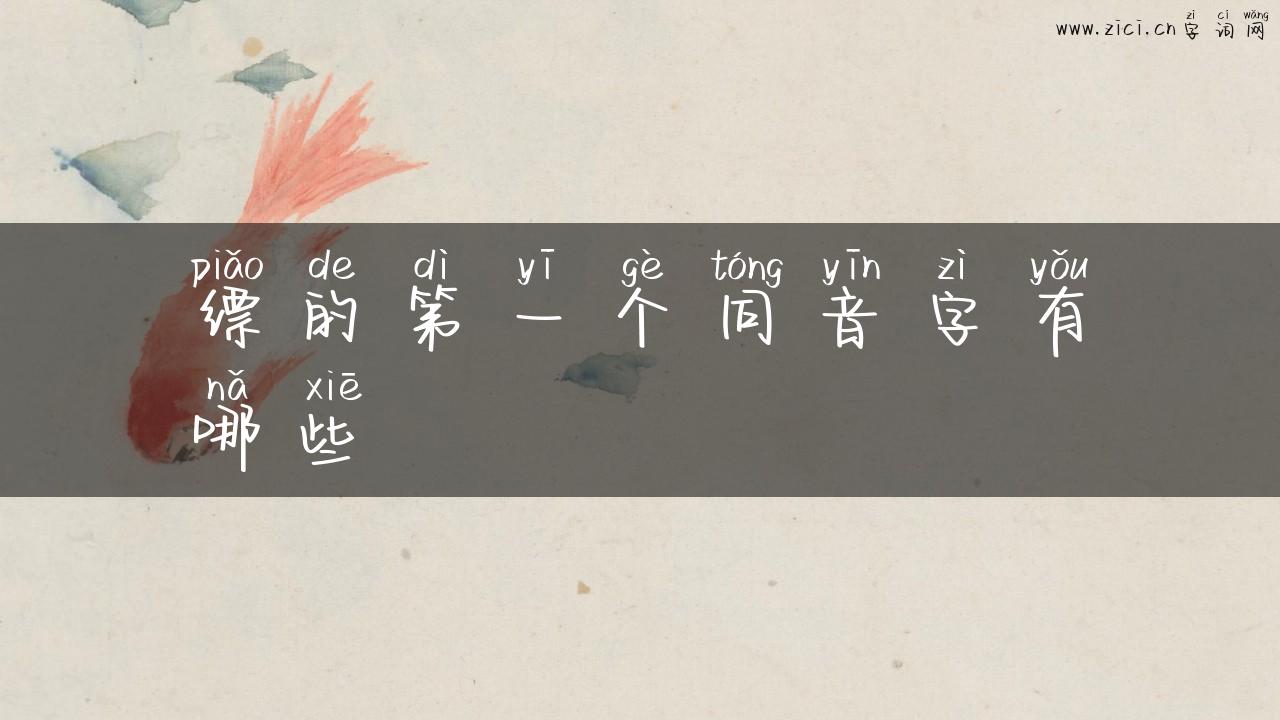 zì cí wǎng
www.zici.cn 字 词 网
piǎo de dì yī gè tóng yīn zì yǒu
缥 的 第 一 个 同 音 字 有
nǎ xiē
哪 些